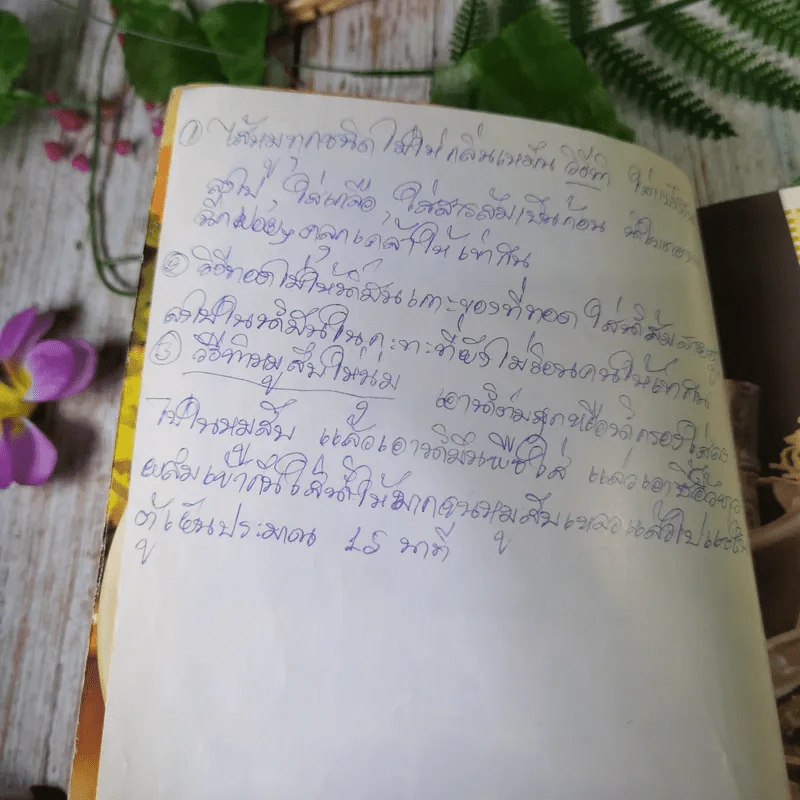 ① ไส้หมูทุกชนิด ไม่ให้กลิ่นเหม็น วิธีทำ ใส่แป้งมัน
ลงไป ใส่เกลือ ใส่สารส้มเป็นก้อน
ฉีกฝอยๆ คลุกเคล้าให้เข้ากัน
② วิธีทอดไม่ให้น้ำมันเกาะของที่ทอด ใส่น้ำส้มสายชู
ลงไปในน้ำมันในกะทะที่ยังไม่ร้อนคนให้เข้ากัน
③ วิธีทำหมูสับให้นุ่ม เอาน้ำต้ม
ไปในหมูสับ แล้วเอาน้ำมันพืชใส่ แล้วเอาซีอิ๊วขาว
ผสมเข้ากันใส่น้ำให้มากจนหมูสับเหลวแล้วไปแช่ใน
ตู้เย็นประมาณ 15 นาที